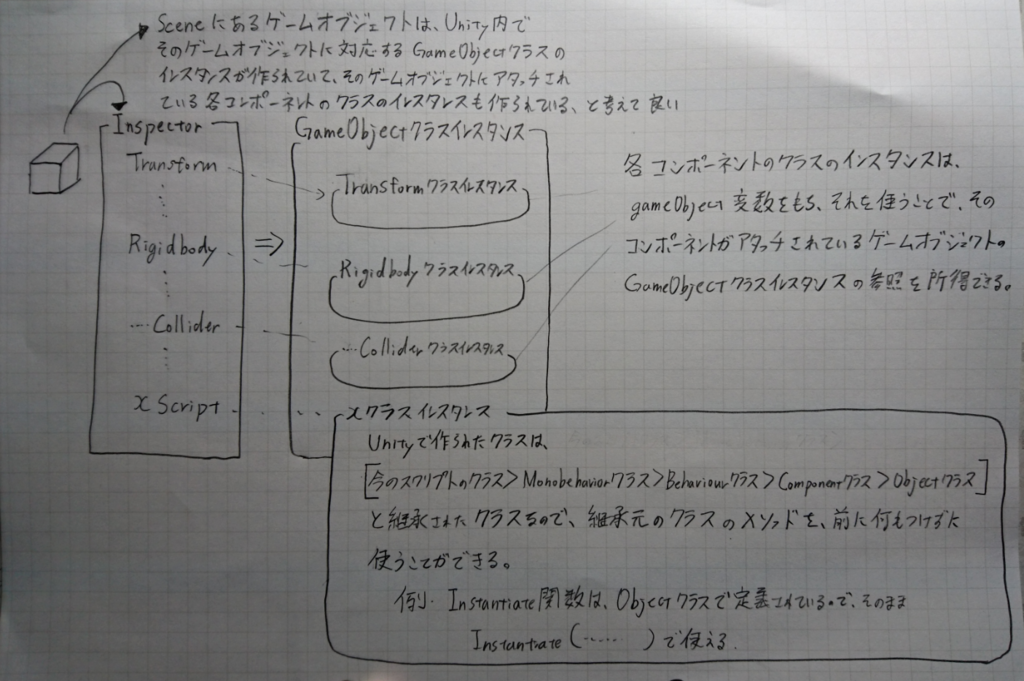 Sceneにあるゲームオブジェクトは、Unity内で
そのゲームオブジェクトに対応するGameObjectクラスの
インスタンスが作られていて、そのゲームオブジェクトにアタッチされ
ている各コンポーネントのクラスのインスタンスも作られている、と考えて良い
Inspector
Transform
Rigidbody
⇒
…Collider
x Script
GameObjectクラスインスタンス
Transformクラスインスタンス
Rigidbodyクラスインスタンス
…Colliderクラスインスタンス
各コンポーネントのクラスのインスタンスは、
gameObject変数をもち、それを使うことで、その
コンポーネントがアタッチされているゲームオブジェクトの
GameObjectクラスインスタンスの参照を所得できる。
xクラスインスタンス
Unityで作られたクラスは、
[今のスクリプトのクラス>Monobehaviorクラス>Behaviourクラス>Componentクラス>Objectクラス]
と継承されたクラスなので、継承元のクラスのメソッドを、前に何もつけずに
使うことができる。
例. Instantiate関数は、Objectクラスで定義されているので、そのまま
Instantiate(……)で使える.